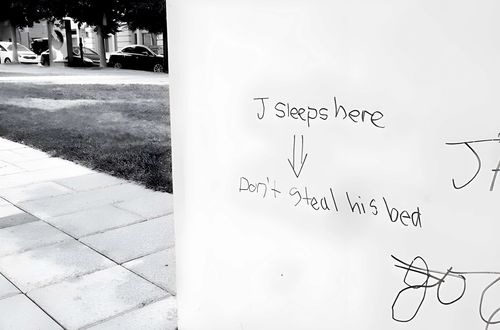 J sleeps here
Don't steal his bed
go